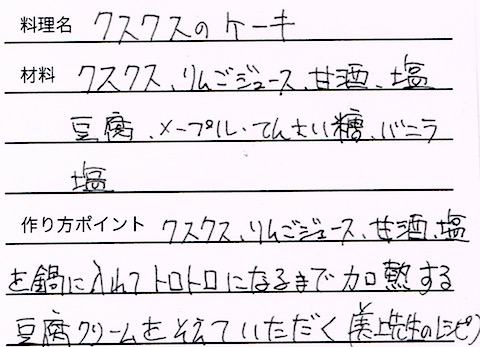 料理名 クスクスのケーキ
材料 クスクス、りんごジュース、甘酒、塩
豆腐、メープル・てんさい糖、バニラ
塩
作り方ポイント クスクス、りんごジュース、甘酒、塩
を鍋に入れてトロトロになるまで加熱する
豆腐クリームをそえていただく(美上先生のレシピ)